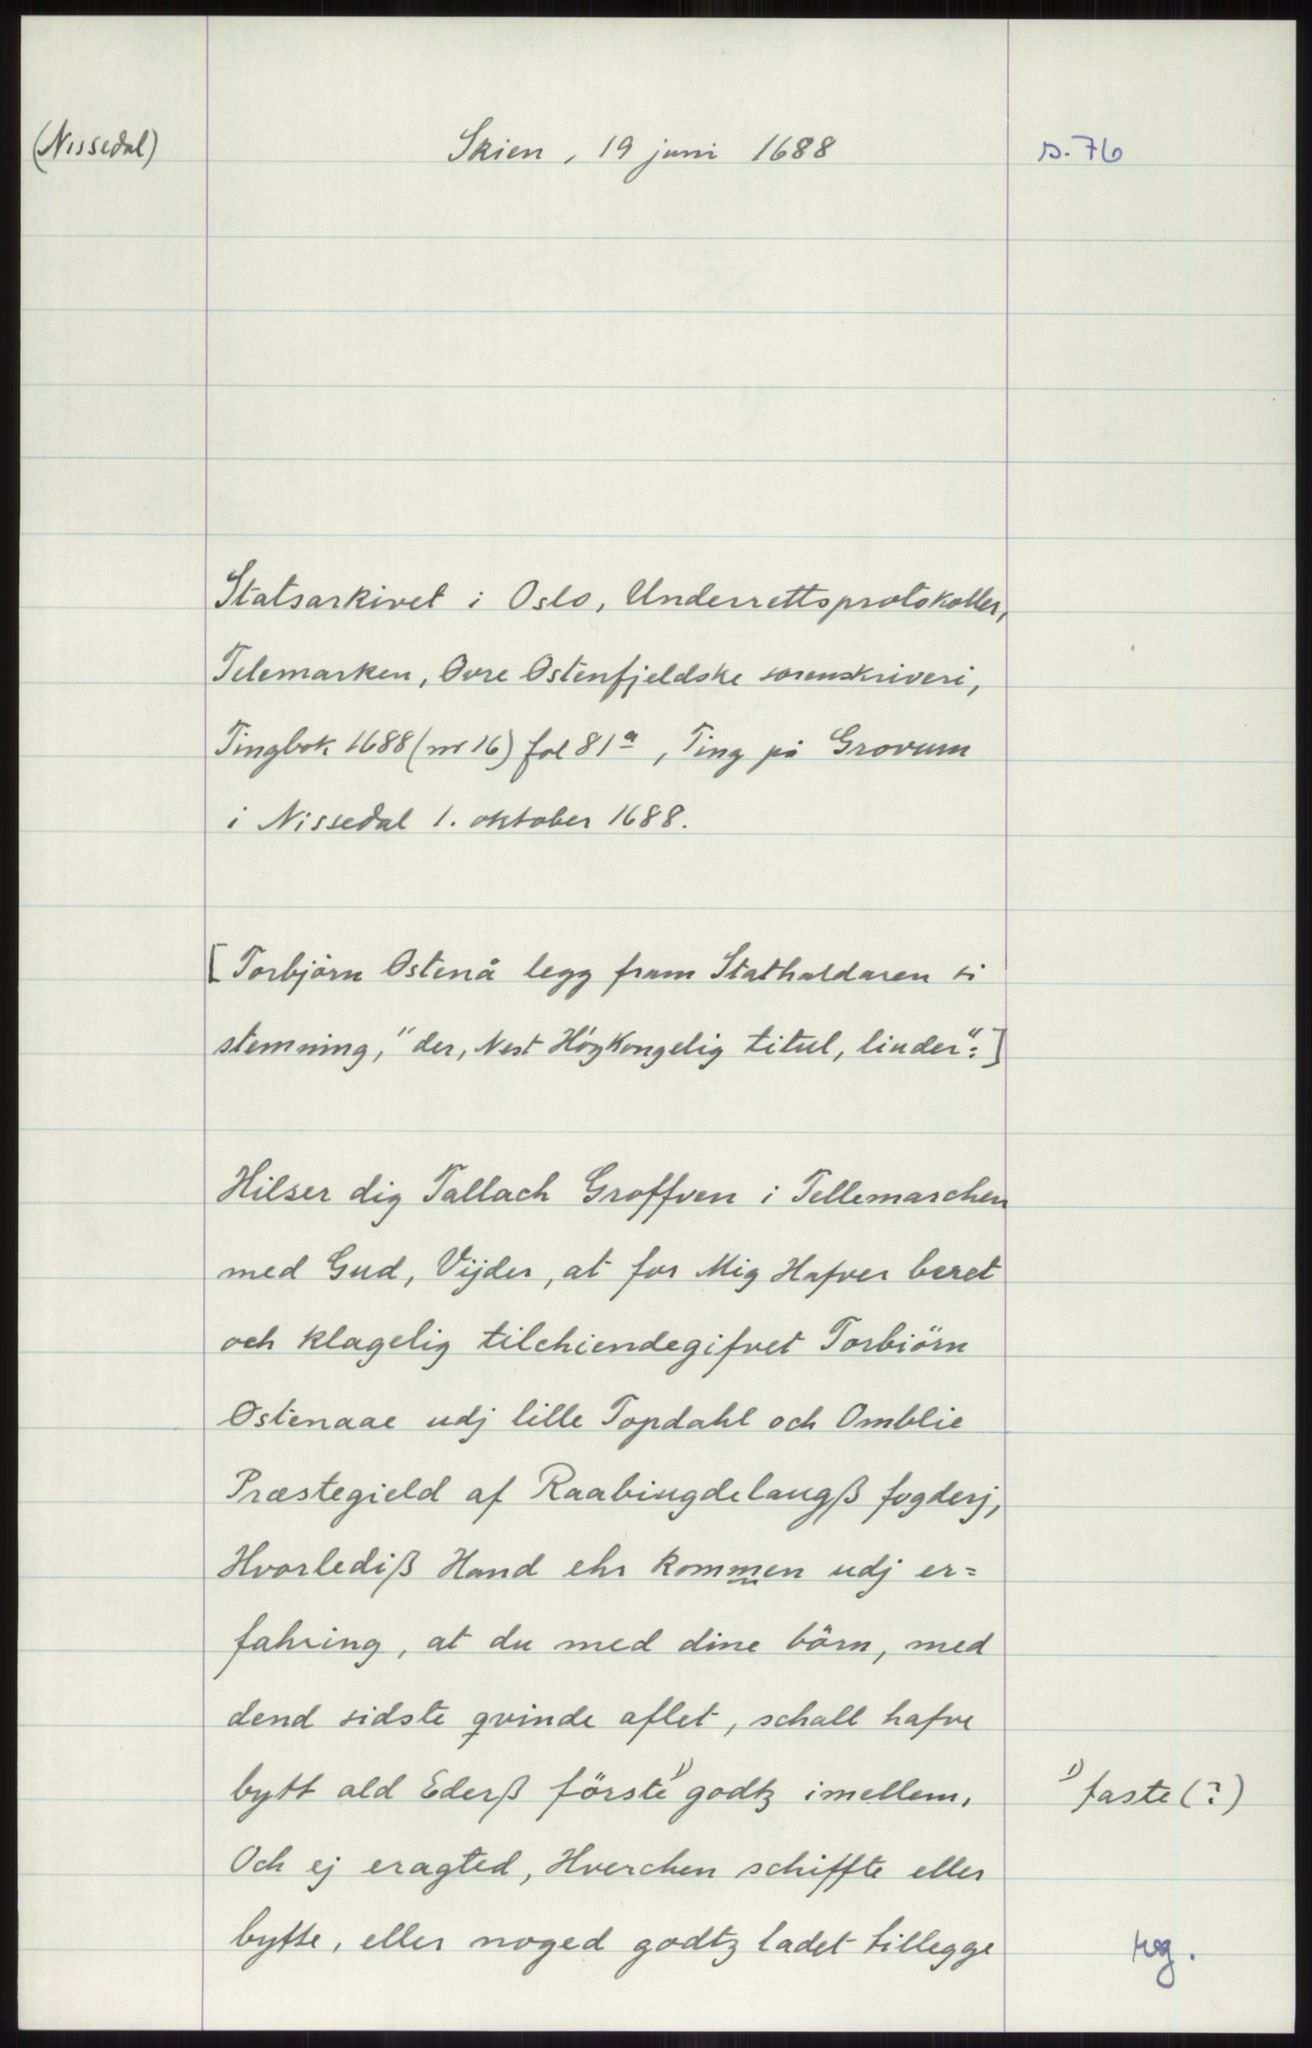 (Nissedal) Skien, 19 juni 1688 s. 76
Statsarkivet i Oslo, Underrettsprotokoller,
Telemarken, Øvre Østenfjeldske sorenskriveri,
Tingbok 1688 (nr 16) fol 81ª, Ting på Grovum
i Nissedal 1. oktober 1688.
[Torbjörn Østenå legg fram Stathaldaren si
stemning, "der, Nest Høy Kongelig titul, linder":]
Hilser dig Tallach Groffven i Tellemarchen
med Gud, Vijder, at for Mig Hafver beret
och klagelig tilchiendegifvet Torbiörn
Østenaae udj lille Topdahl och Omblie
Præstegield af Raabingdelaugß fogderj,
Hvorlediß Hand ehr kommen udj er=
fahring, at du med dine börn, med
dend sidste qvinde aflet, schall hafve
bytt ald Ederß förste¹⁾ godtz imellem, ¹⁾ faste (?)
Och ej eragted, Hverchen schiffte eller
bytte, eller noged godtz ladet tillegge